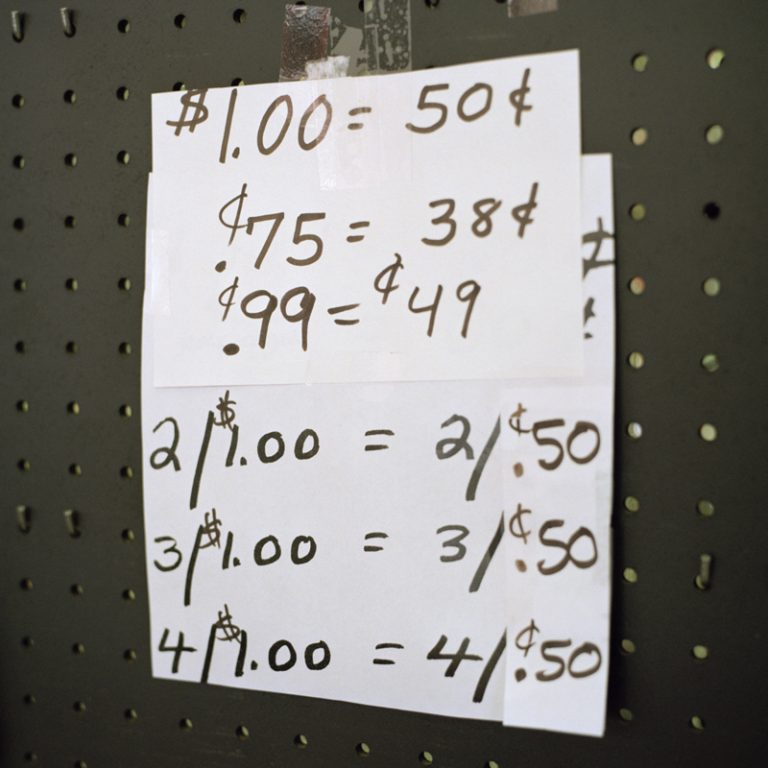 $1.00 = 50¢
¢.75 = 38¢
¢.99 = ¢49
2/$1.00 = 2/¢.50
3/$1.00 = 3/¢.50
4/$1.00 = 4/¢.50